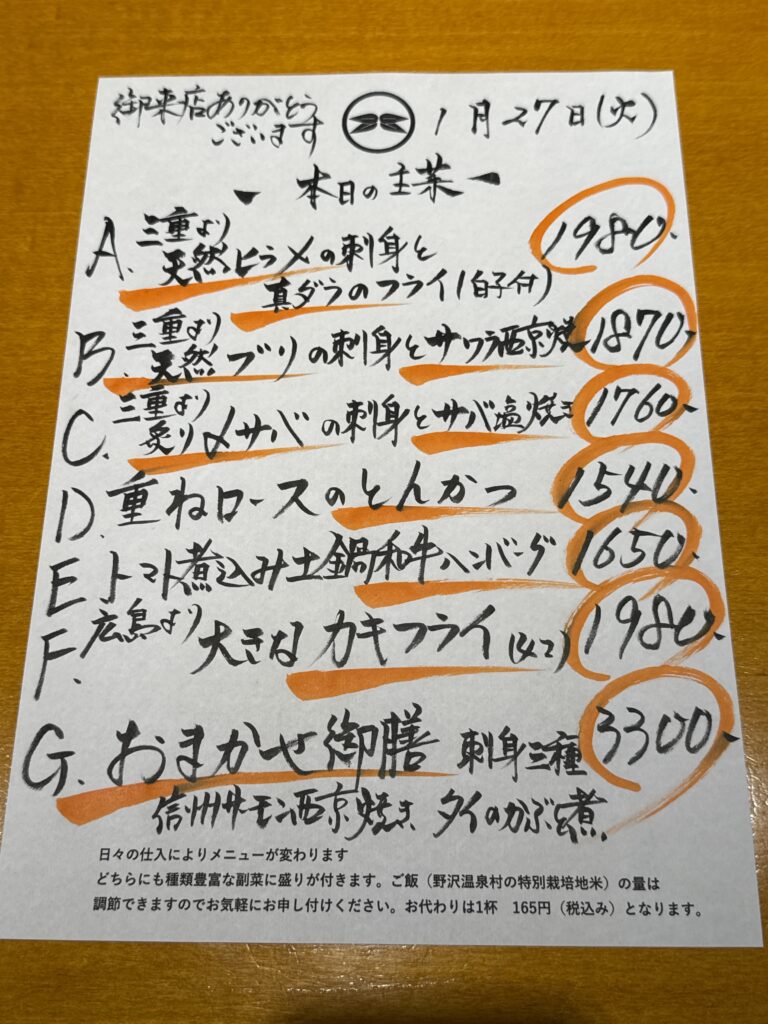 御来店ありがとう
ございます
1月27日(火)
本日の主菜
A. 三重より
天然ヒラメの刺身と
真ダラのフライ(白子付)
1980-
B. 三重より
天然ブリの刺身とサワラ西京焼
1870-
C. 三重より
炙り〆サバの刺身とサバ塩焼き
1760-
D. 重ねロースのとんかつ
1540-
E トマト煮込み土鍋和牛ハンバーグ
1650-
F. 広島より
大きなカキフライ
1980-
G. おまかせ御膳 刺身三種
3300-
信州サーモン西京焼き タイのかぶと煮
日々の仕入によりメニューが変わります
どちらにも種類豊富な副菜に盛りが付きます。ご飯(野沢温泉村の特別栽培地米)の量は
調節できますのでお気軽にお申し付けください。お代わりは1杯 165円(税込み)となります。